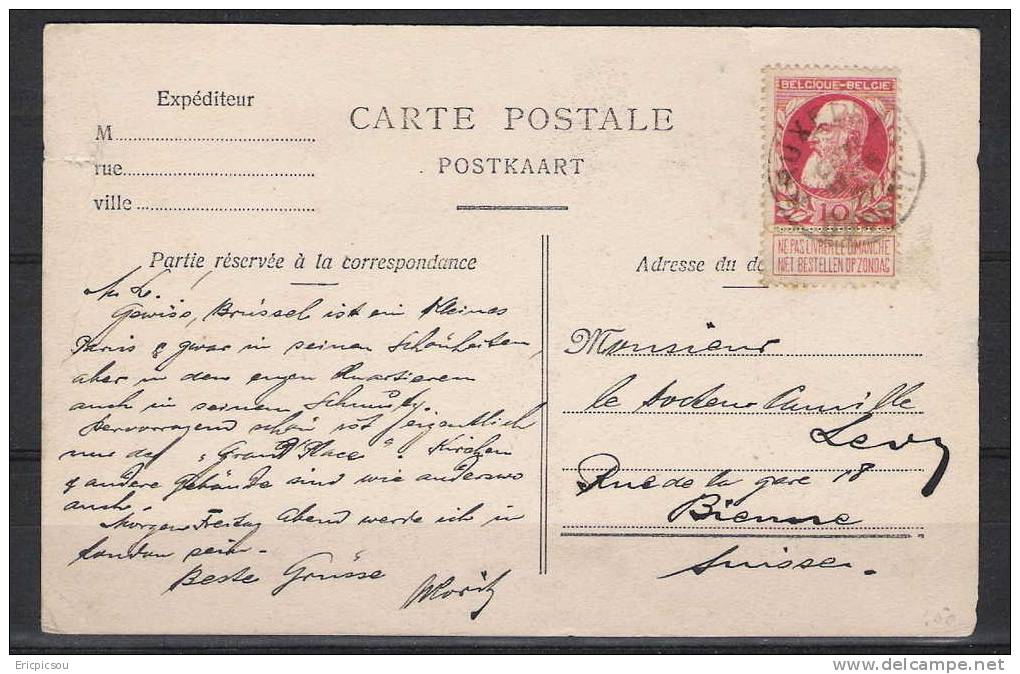 Expéditeur
M
rue
ville
CARTE POSTALE
POSTKAART
BELGIQUE-BELGIË
10
NE PAS LIVRER LE DIMANCHE
NIET BESTELLEN OP ZONDAG
Partie réservée à la correspondance
M. L.
Gewiss, Brüssel ist ein kleines
Paris & zwar in seinen Schönheiten,
aber in den engen Quartieren
auch in seinem Schmutz.
Hervorragend schön ist eigentlich
nur der "Grand' Place". Kirchen
& andere Gebäude sind wie anderswo
auch.
Morgen Freitag Abend werde ich in
London sein.
Beste Grüsse
Moritz
Adresse du de
Monsieur
le docteur Camille
Levy
Rue de la gare 18
Bienne
Suisse.
Ericpicsou
delcampe.net